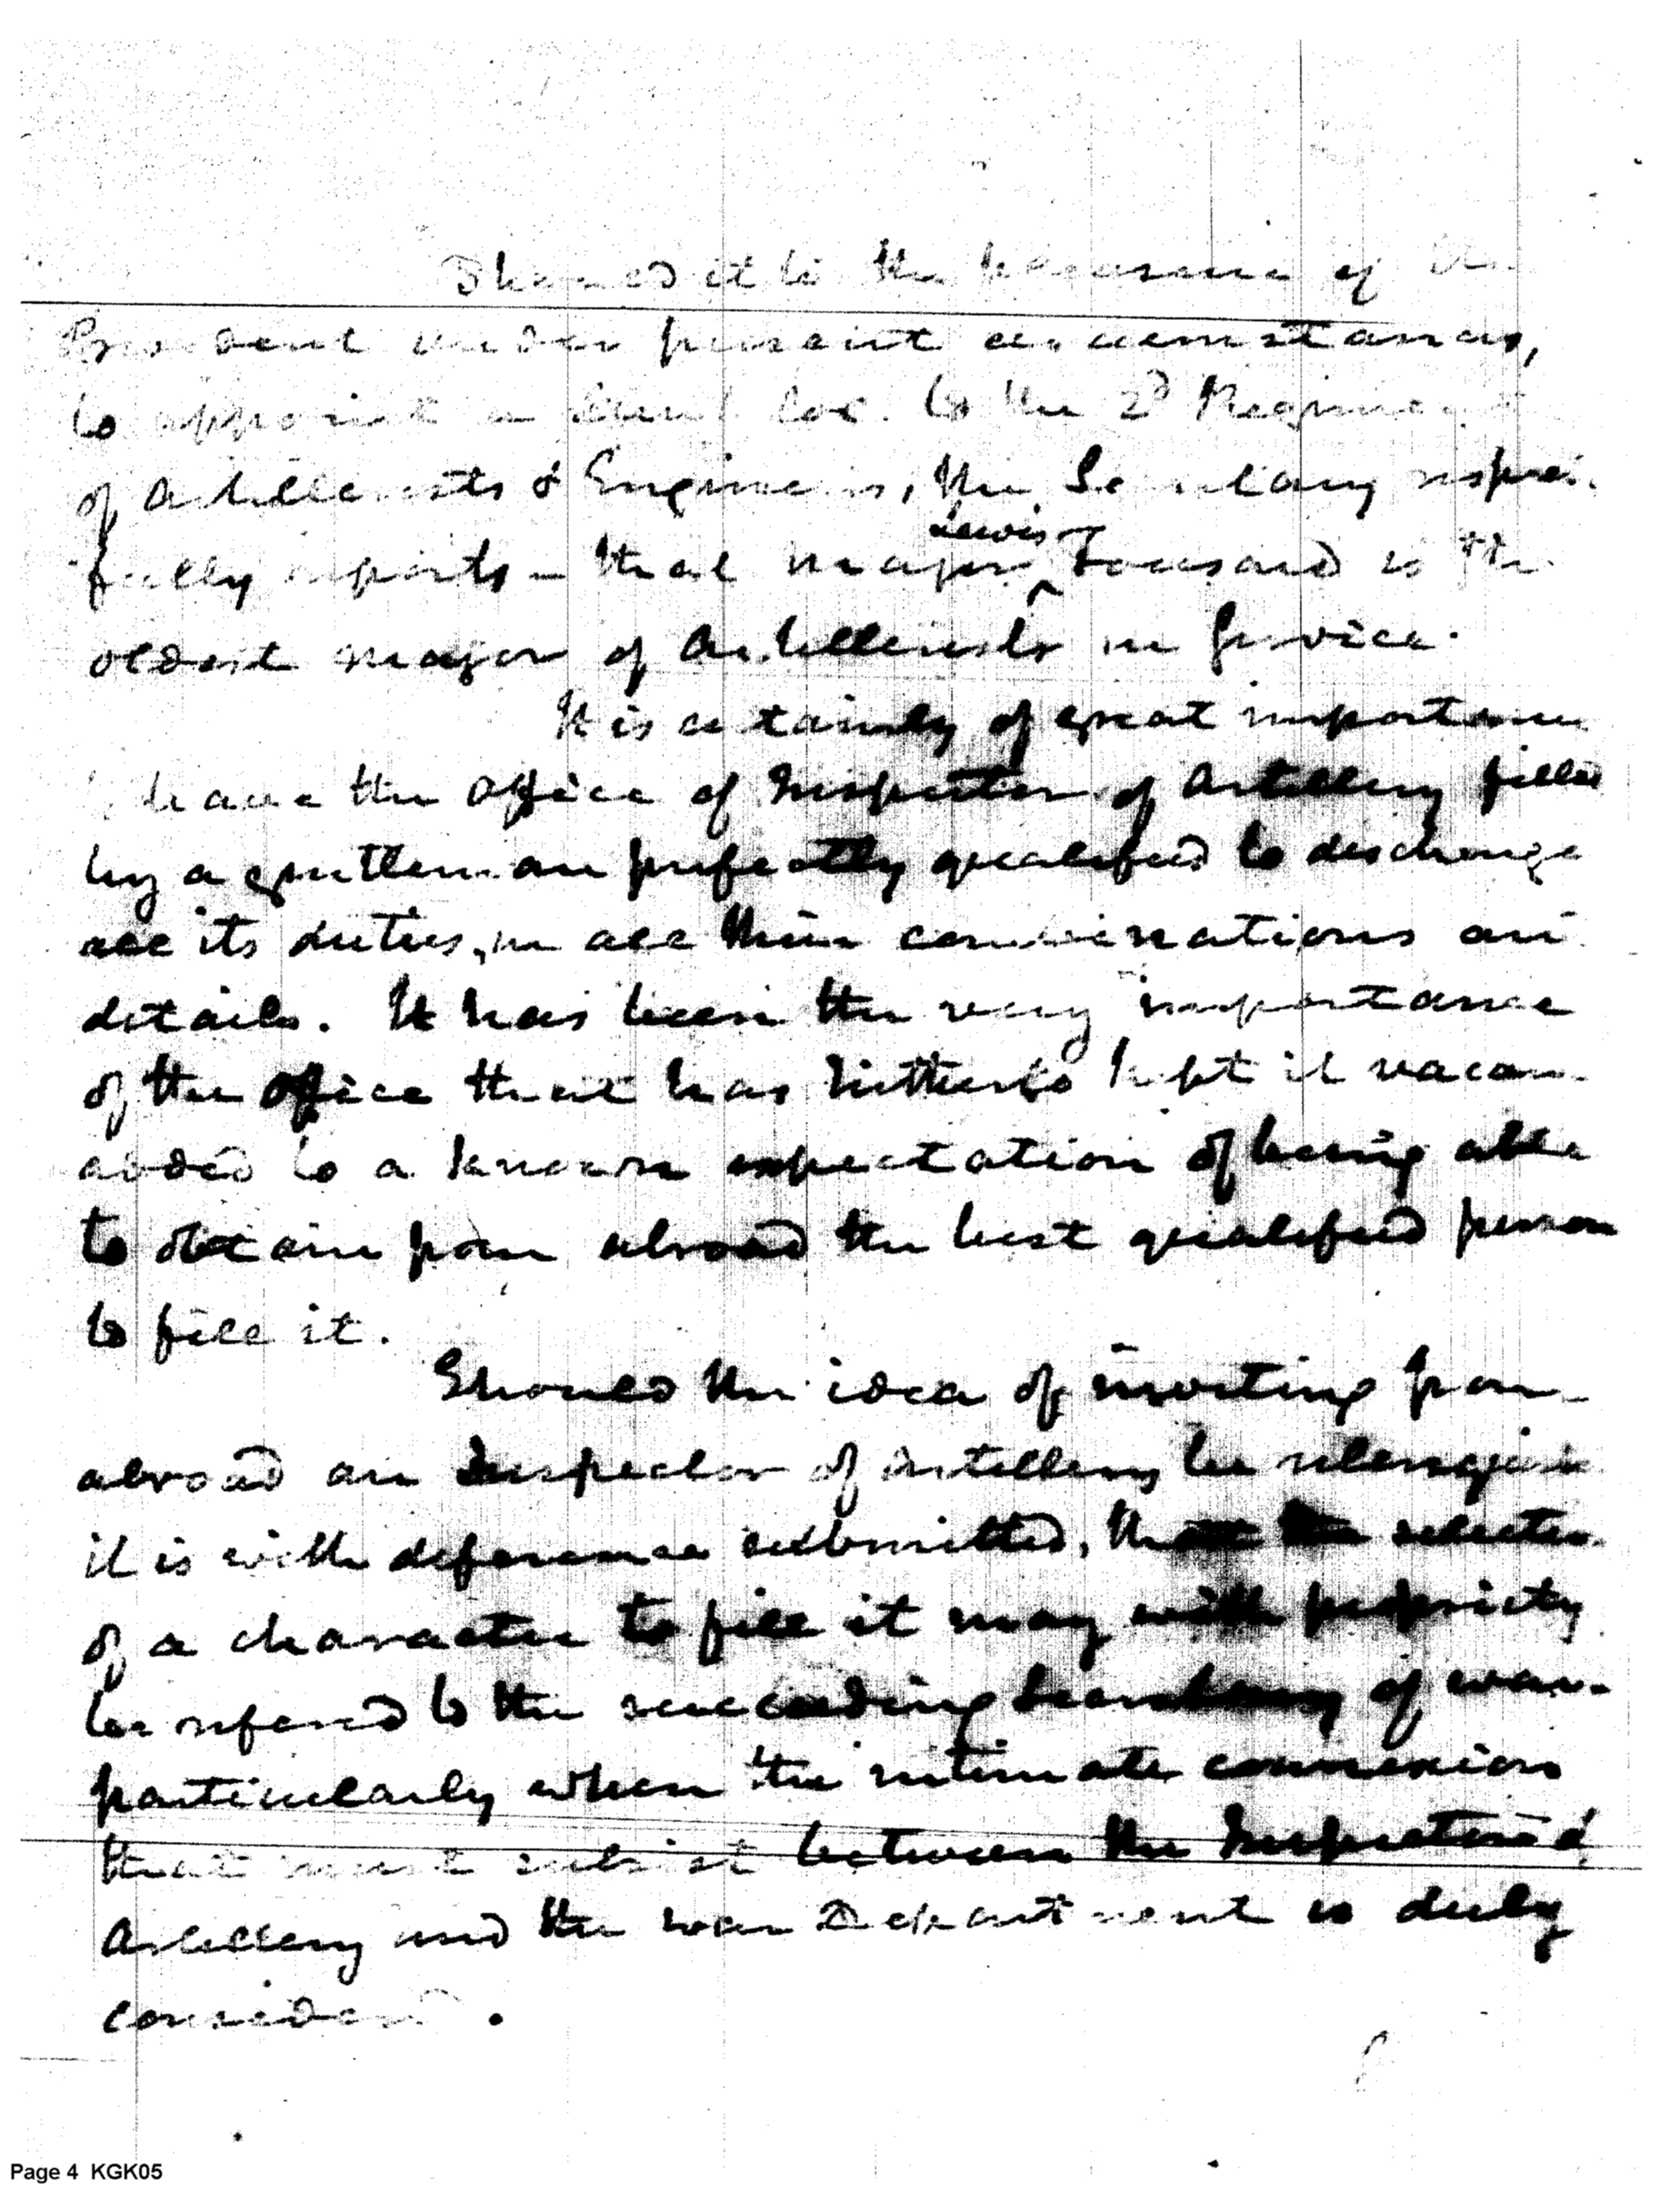 Should it be the pleasure of the
President under present circumstances,
to appoint a Lieut Col. to the 2d Regiment
of Artillerists & Engineers, the Secretary respect-
fully reports - that major Lewis Tousard is the
oldest major of Artillerists in service.
It is certainly of great importance
have the office of Inspector of Artillery filled
by a gentleman perfectly qualified to discharge
all its duties, in all their combinations and
details. It has been the very importance
of the office that has hitherto kept it vacan
added to a known expectation of being able
to obtain from abroad the best qualified person
to fill it.
Should the idea of inviting from
abroad an Inspector of Artillery be relinquish
it is with deference submitted, that the selection
of a character to fill it may with propriety
be refered to the succeeding Secretary of war.
particularly when the intimate connexion
that must subsist between the Inspector of
Artillery and the war Department is duly
considered.
Page 4 KGK05